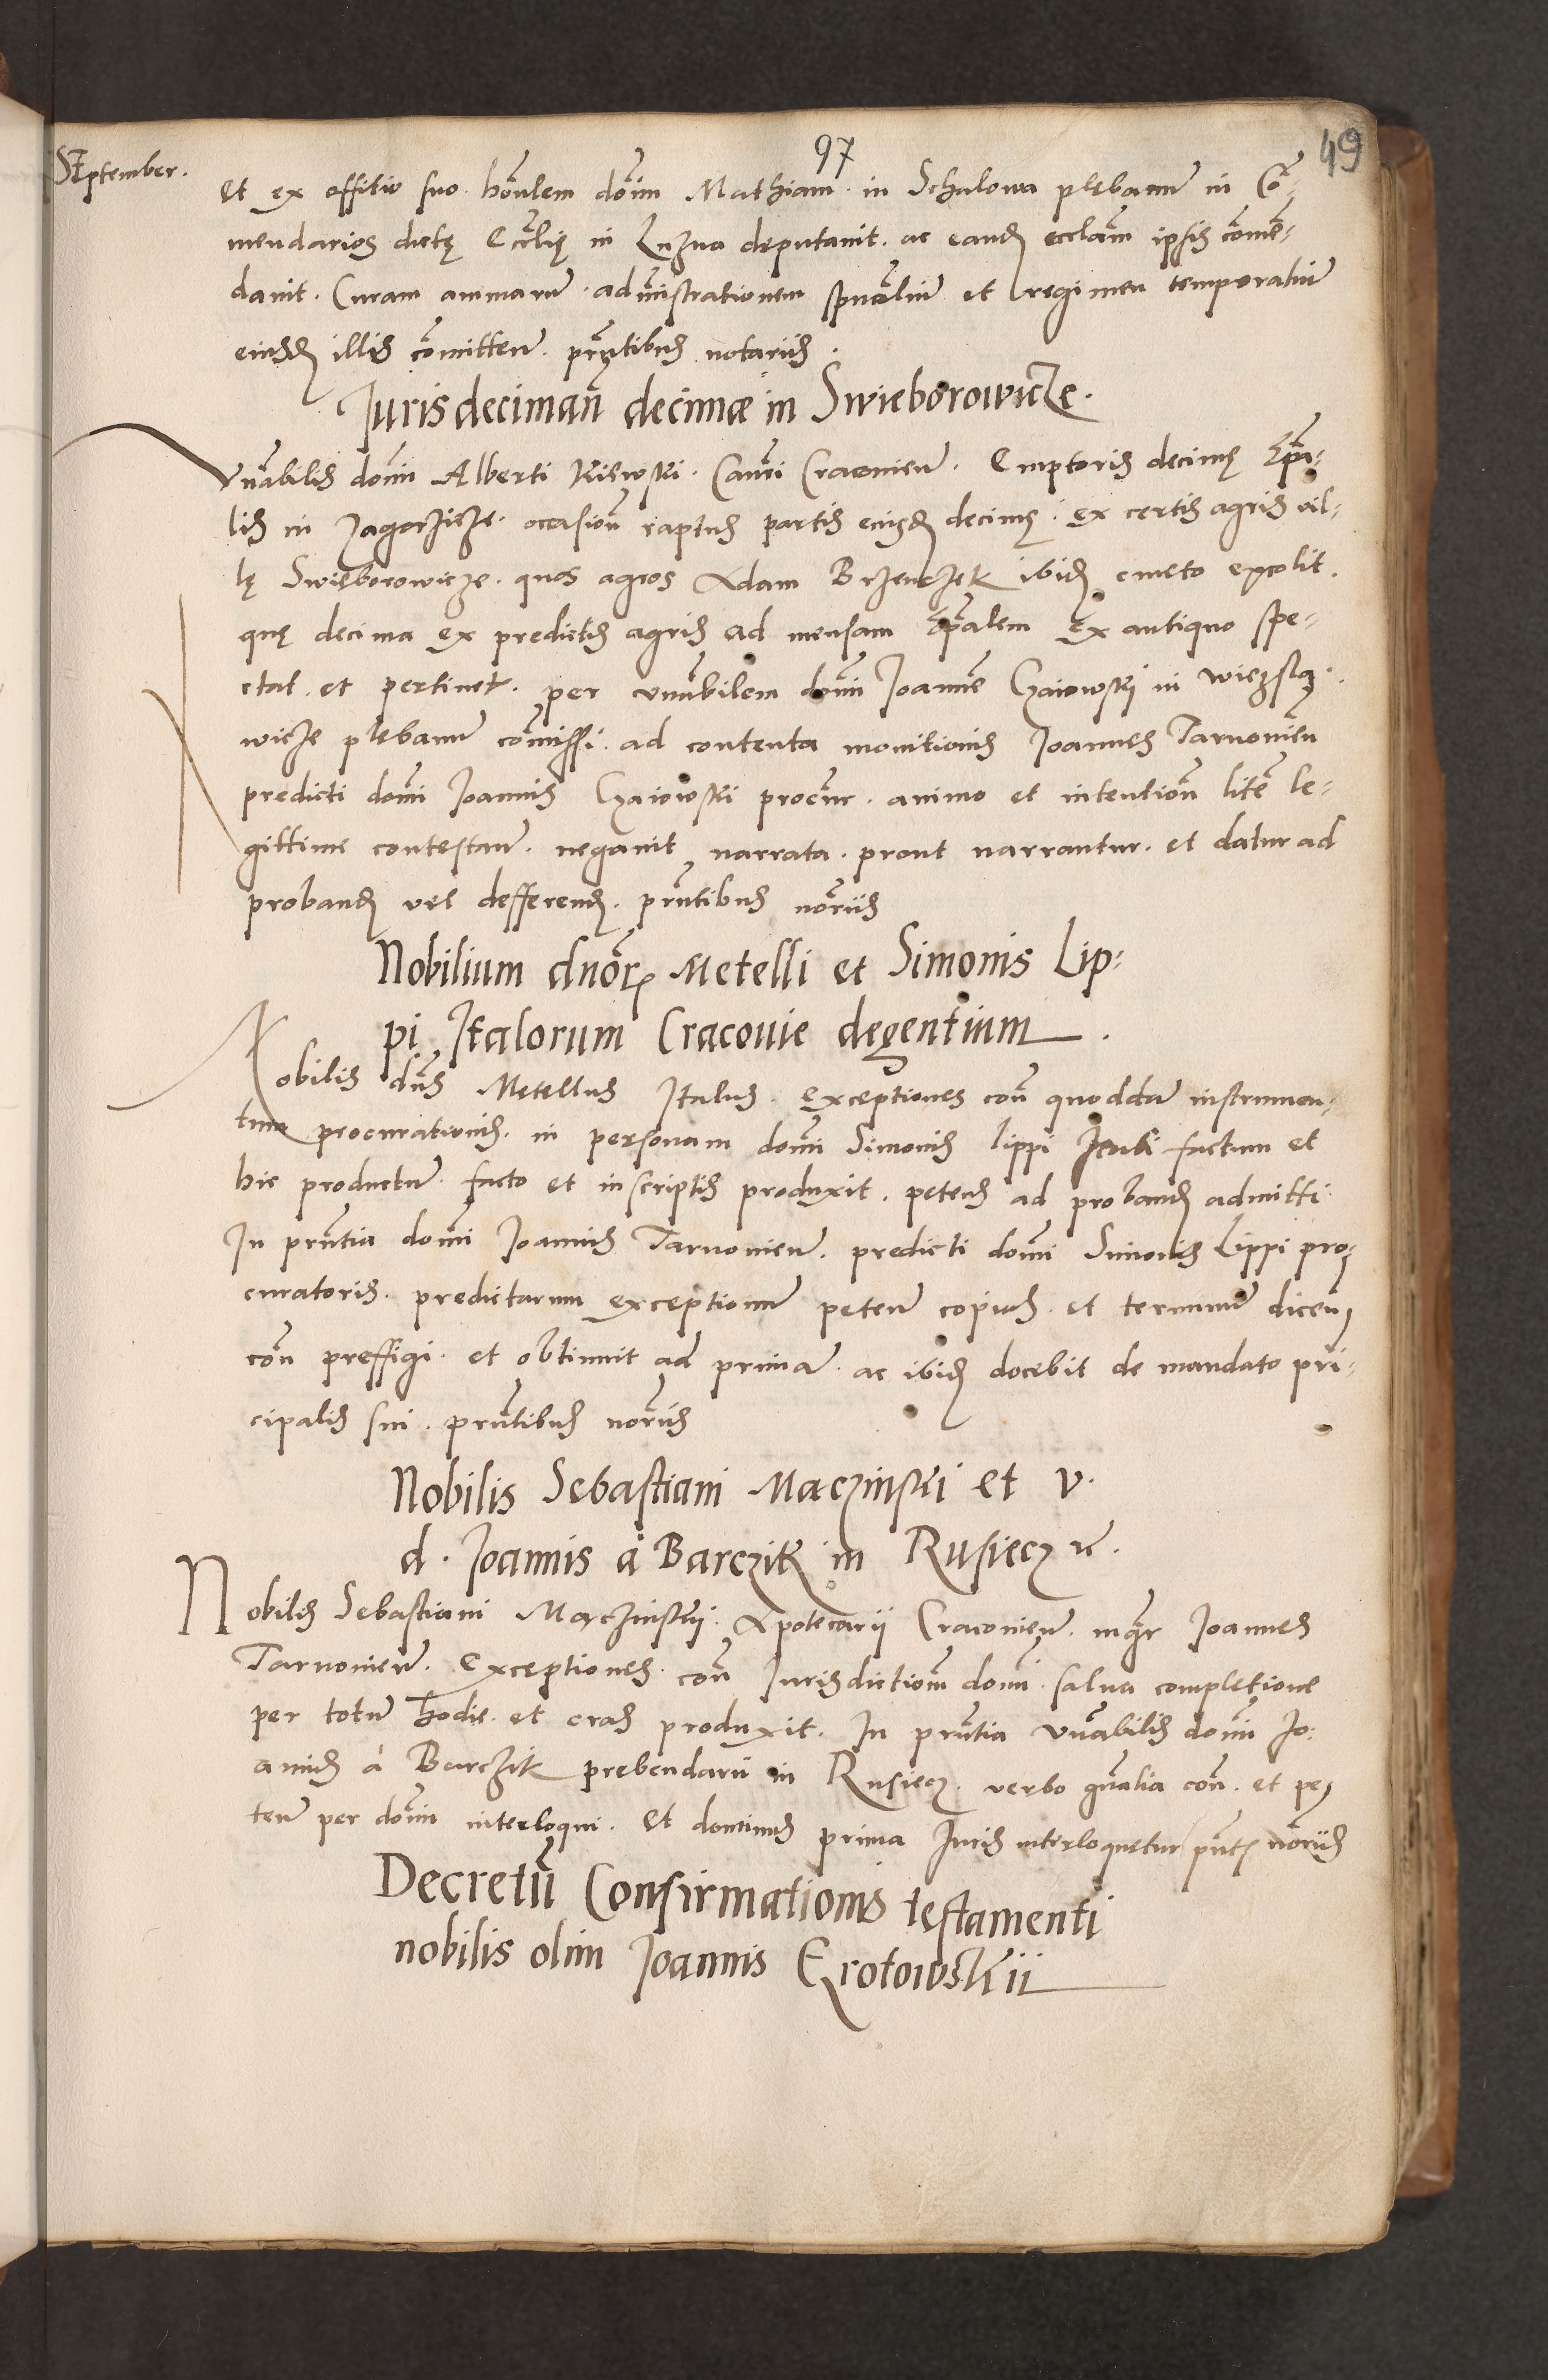 97
49
September.
Et ex offitio suo. honlem domin Mathiam. in Schalowa plebanum in Co-
mendarios dictę Ecclię in Luzna deputavit. ac eand ecclam ipsis comen-
davit. Curam animarum. administrationem spualium et regimen temporalium
eiusd illis comitten. pntibus notariis.
Iuris decimani decimæ in Swieborowicze.
Vnabilis domin Alberti Kiewski. Canci Cracovien. Emptoris decimę Epa-
lis in Zagorzicze. occasion raptus partis eiusd decimę. ex certis agris vil-
lę Swieborowicze. quos agros Adam Brzenczek ibid cmeto excolit.
quę decima ex predictis agris ad mensam Epalem Ex antiquo spe-
ctat. et pertinet. per vnabilem domi Joannem Gaiowski in
wicze plebanum commissi. ad contenta monitionis Joannes Tarnovien
predicti domi Joannis Gaiowski procur. animo et intention litem le-
gittime contestan. negavit narrata. prout narrantur. et datur ad
proband vel defferend. pntibus noriis
Nobilium dnor Metelli et Simonis Lip-
pi Italorum Cracovie degentium.
Nobilis dns Metellus Italus. Exceptiones con quoddam instrumen-
tum procurationis. in personam domi Simonis Lippi Itali factum et
hic productum. facto et in scriptis produxit. petens ad proband admitti.
In pntia domi Joannis Tarnovien. predicti domi Simonis Lippi pro-
curatoris. predictarum exceptionum peten copias. et terminum dicen
con preffigi. et obtinuit ad primam. ac ibid docebit de mandato pri-
cipalis sui. pntibus noriis
Nobilis Sebastiani Maczinski et v.
d. Joannis à Barczik in Rusiecz
Nobilis Sebastiani Maczinskii. Apotecarii Cracovien. mgr Joannes
Tarnovien. Exceptiones. con Iurisdictionem domi. salva completione
per totum hodie. et cras produxit. In pntia vnabilis domi Jo-
annis à Barczik prebendarii in Rusiecz. verbo gnalia con. et pe-
ten per domin interloqui. Et dominus prima Iuris interloquetur pnt noriis
Decretu Confirmationis testamenti
nobilis olim Joannis Grotowskii